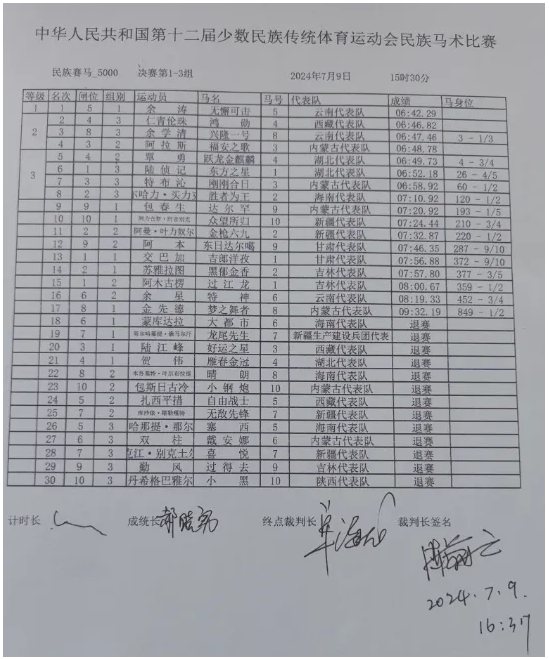 中华人民共和国第十二届少数民族传统体育运动会民族马术比赛
民族赛马_5000 决赛第1-3组 2024年7月9日 15时30分
等级 名次 闸位 组别 运动员 马名 马号 代表队 成绩 马身位
1 1 5 1 余涛 无懈可击 5 云南代表队 06:42.29
2 4 3 仁青伦珠 鸿勋 4 西藏代表队 06:46.82
2 3 8 3 余学清 兴隆一号 8 云南代表队 06:47.46 3 - 1/3
4 3 2 阿拉斯 福安之歌 3 内蒙古代表队 06:48.78
5 4 2 覃勇 跃龙金麒麟 4 湖北代表队 06:49.73 4 - 3/4
3 6 1 3 陆侦记 东方之星 1 湖北代表队 06:52.18 26 - 4/5
7 3 3 特布沁 刚刚合日 3 内蒙古代表队 06:58.92 60 - 1/2
8 2 3 哈力·买力 胜者为王 2 海南代表队 07:10.92 120 - 1/2
9 9 1 包春生 达尔罕 9 内蒙古代表队 07:20.92 193 - 1/5
10 10 1 众望所归 10 新疆代表队 07:24.44 210 - 3/4
11 2 2 阿曼·叶力奴尔 金枪六九 2 新疆代表队 07:32.87 220 - 1/2
12 9 2 阿本 东日达尔噶 9 甘肃代表队 07:46.35 287 - 9/10
13 1 1 交巴加 吉郎洋孜 1 甘肃代表队 07:56.88 372 - 9/10
14 2 1 苏雅拉图 黑郁金香 2 吉林代表队 07:57.80 377 - 3/5
15 1 2 阿木古楞 过江龙 1 吉林代表队 08:00.67 359 - 1/2
16 6 2 余星 特神 6 云南代表队 08:19.33 452 - 3/4
17 8 1 金先德 梦之舞者 8 内蒙古代表队 09:32.19 849 - 1/2
18 6 1 蒙库达拉 大都市 6 海南代表队 退赛
19 7 1 龙尾先生 7 新疆生产建设兵团代表 退赛
20 3 1 陆江峰 好运之星 3 西藏代表队 退赛
21 4 1 贺伟 雁春金冠 4 湖北代表队 退赛
22 8 2 晴朗 8 海南代表队 退赛
23 10 2 包斯日古冷 小钢炮 10 内蒙古代表队 退赛
24 5 2 扎西平措 自由战士 5 西藏代表队 退赛
25 7 2 无敌先锋 7 新疆代表队 退赛
26 5 3 哈那提·那尔 塞西 5 海南代表队 退赛
27 6 3 双柱 戴安娜 6 内蒙古代表队 退赛
28 7 3 克江·别克土尔 喜悦 7 新疆代表队 退赛
29 9 3 勤风 过得去 9 吉林代表队 退赛
30 10 3 丹希格巴雅尔 小黑 10 陕西代表队 退赛
计时长 成绩长 终点裁判长 裁判长签名
2024.7.9.
16:37